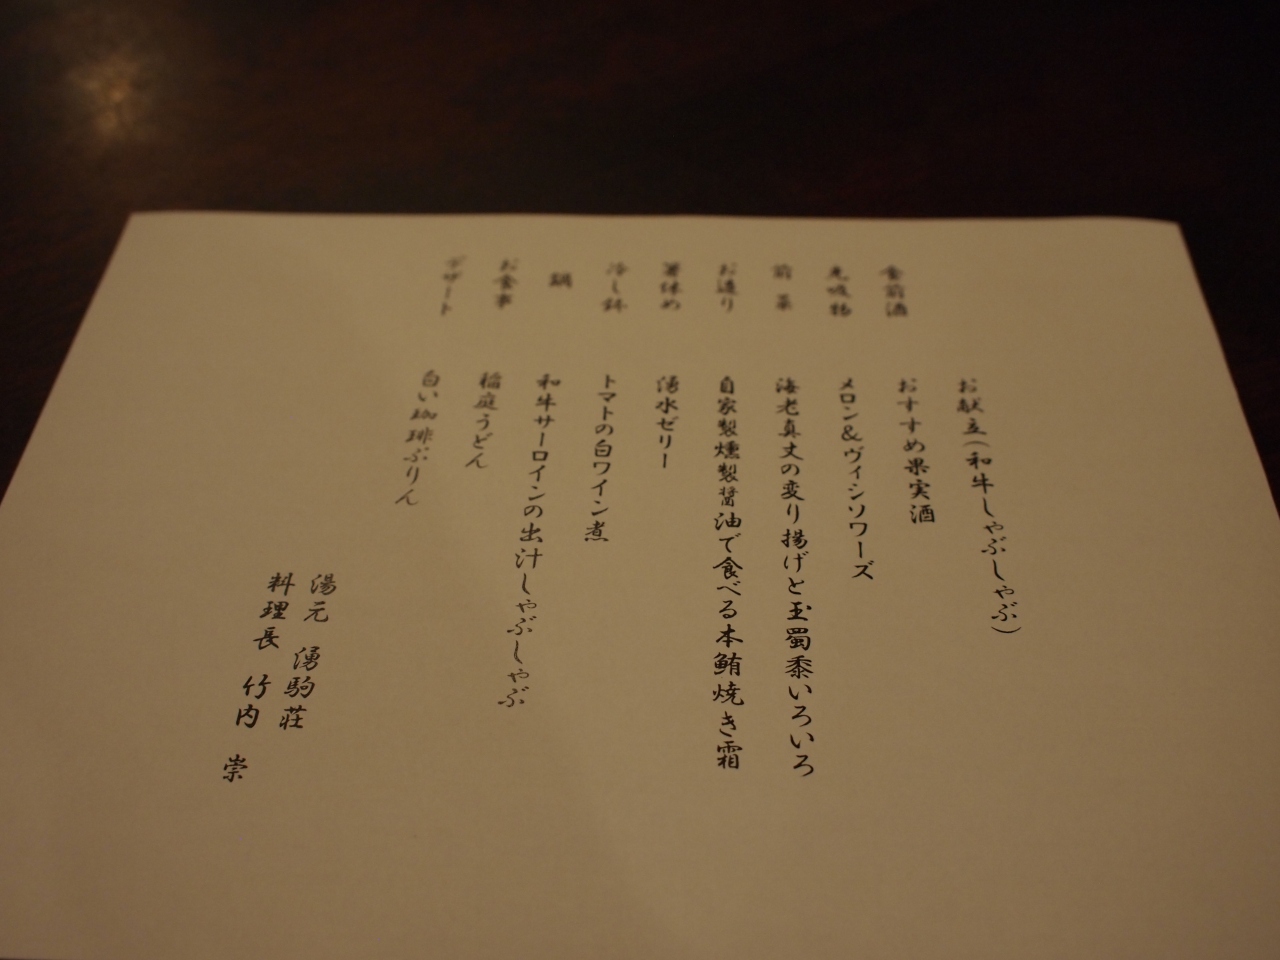 お献立（和牛しゃぶしゃぶ）
食前酒　おすすめ果実酒
先吸物　メロン＆ヴィシソワーズ
前菜　海老真丈の変り揚げと玉蜀黍いろいろ
お造り　自家製燻製醤油で食べる本鮪焼き霜
箸休め　湧水ゼリー
冷し鉢　トマトの白ワイン煮
鍋　和牛サーロインの出汁しゃぶしゃぶ
お食事　稲庭うどん
デザート　白い珈琲ぷりん
湯元　湧駒荘
料理長　竹内　崇